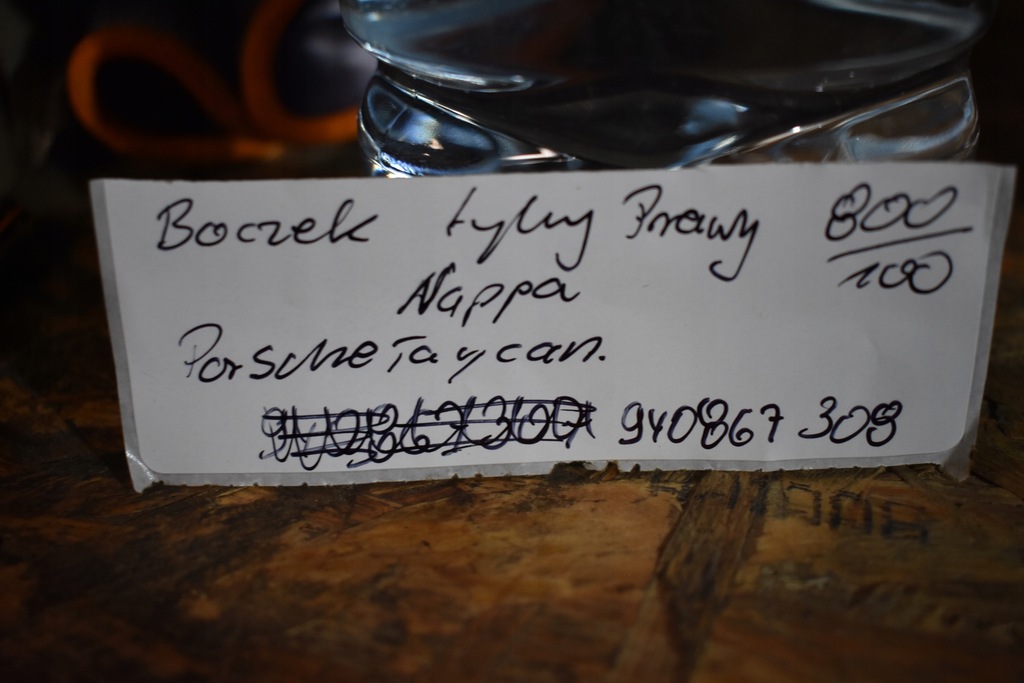 Boczek tylny Prawy 800/100
Nappa
Porsche Taycan.
940867307 940867 308